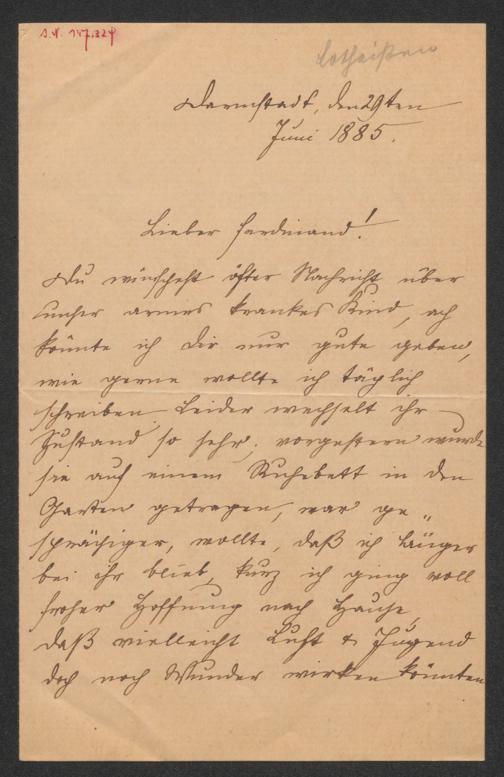 J.N. 157.324
Lotheißen
Darmstadt, den 29ten
Juni 1885.
Lieber Ferdinand!
Du wünschest öfter Nachricht über
unser armes krankes Kind, ach
könnte ich Dir nur gute geben,
wie gerne wollte ich täglich
schreiben. Leider wechselt ihr
Zustand so sehr; vorgestern wurde
sie auf einem Ruhebett in den
Garten getragen, war ge„
sprächiger, wollte, daß ich länger
bei ihr blieb, kurz ich ging voll
froher Hoffnung nach Hause,
daß vielleicht Luft & Jugend
doch noch Wunder wirken könnten